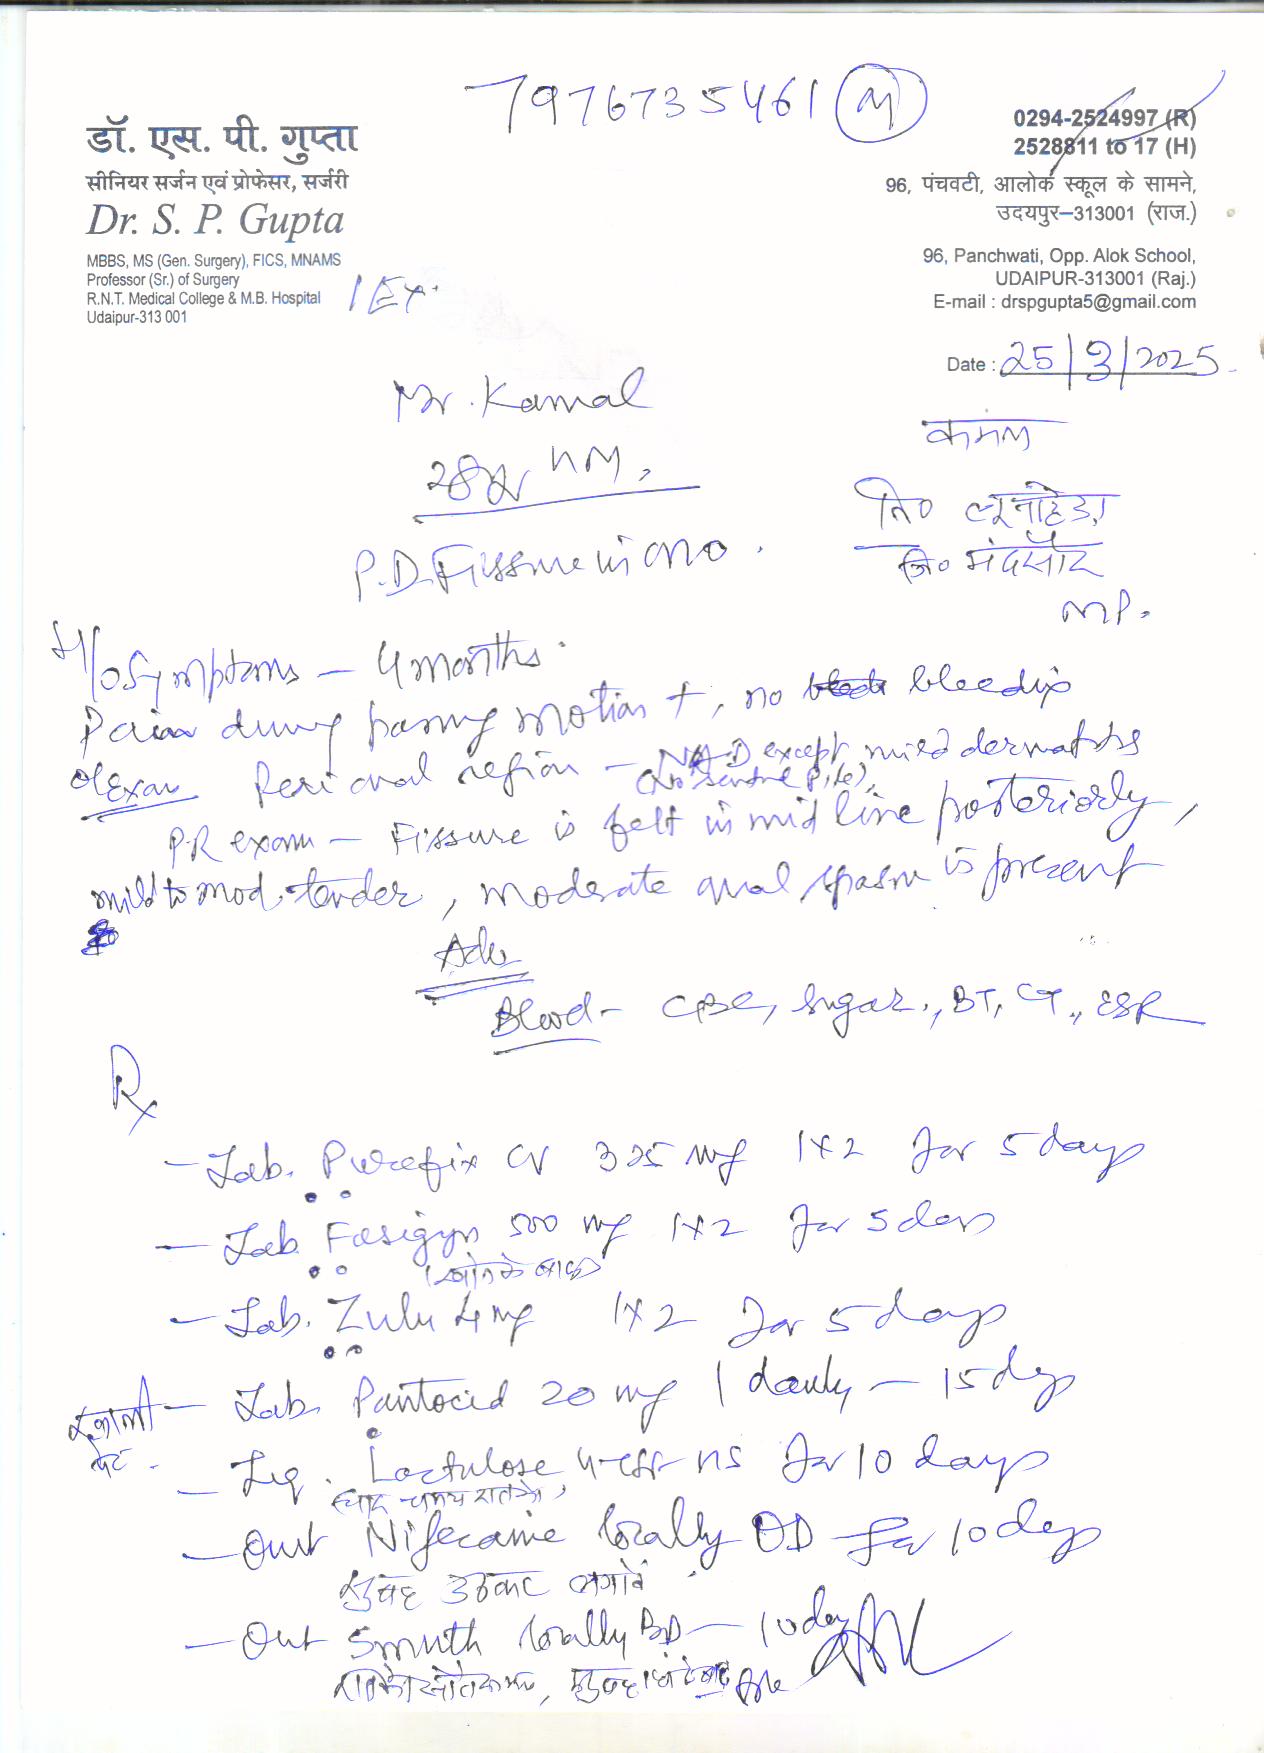 7976735461 (M)
डॉ. एस. पी. गुप्ता
सीनियर सर्जन एवं प्रोफेसर, सर्जरी
Dr. S. P. Gupta
MBBS, MS (Gen. Surgery), FICS, MNAMS
Professor (Sr.) of Surgery
R.N.T. Medical College & M.B. Hospital
Udaipur-313 001
0294-2524997 (R)
2528811 to 17 (H)
96, पंचवटी, आलोक स्कूल के सामने,
उदयपुर–313001 (राज.)
96, Panchwati, Opp. Alok School,
UDAIPUR-313001 (Raj.)
E-mail : drspgupta5@gmail.com
Date : 25/3/2025
Mr. Kamal
28 yr
P.D. Fissure in ano.
कमल
नि०
जि० मंदसौर
MP.
H/o Symptoms – 4 months.
Pain during passing motion +, no bleeding
O/Exam Peri anal region – NAD except mild dermatitis
(No sentinel Pile),
P.R exam – Fissure is felt in mid line posteriorly,
mild to mod. tender, moderate anal spasm is present
Adv
Blood – CBC, Sugar, BT, CT, ESR
Rx
– Tab. Purefix CV 325 mg 1x2 for 5 days
– Tab. Fasigyn 500 mg 1x2 for 5 days
(खाने के बाद)
– Tab. Zulu 4 mg 1x2 for 5 days
– Tab. Pantocid 20 mg 1 daily – 15 days
खाली
पेट
– Liq. Lactulose 4 tsf ns for 10 days
चम्मच रात को
– Oint Nifecaine locally OD for 10 days
सुबह उठकर लगावें
– Oint Smuth locally BD – 10 days
रात को सोते समय, सुबह